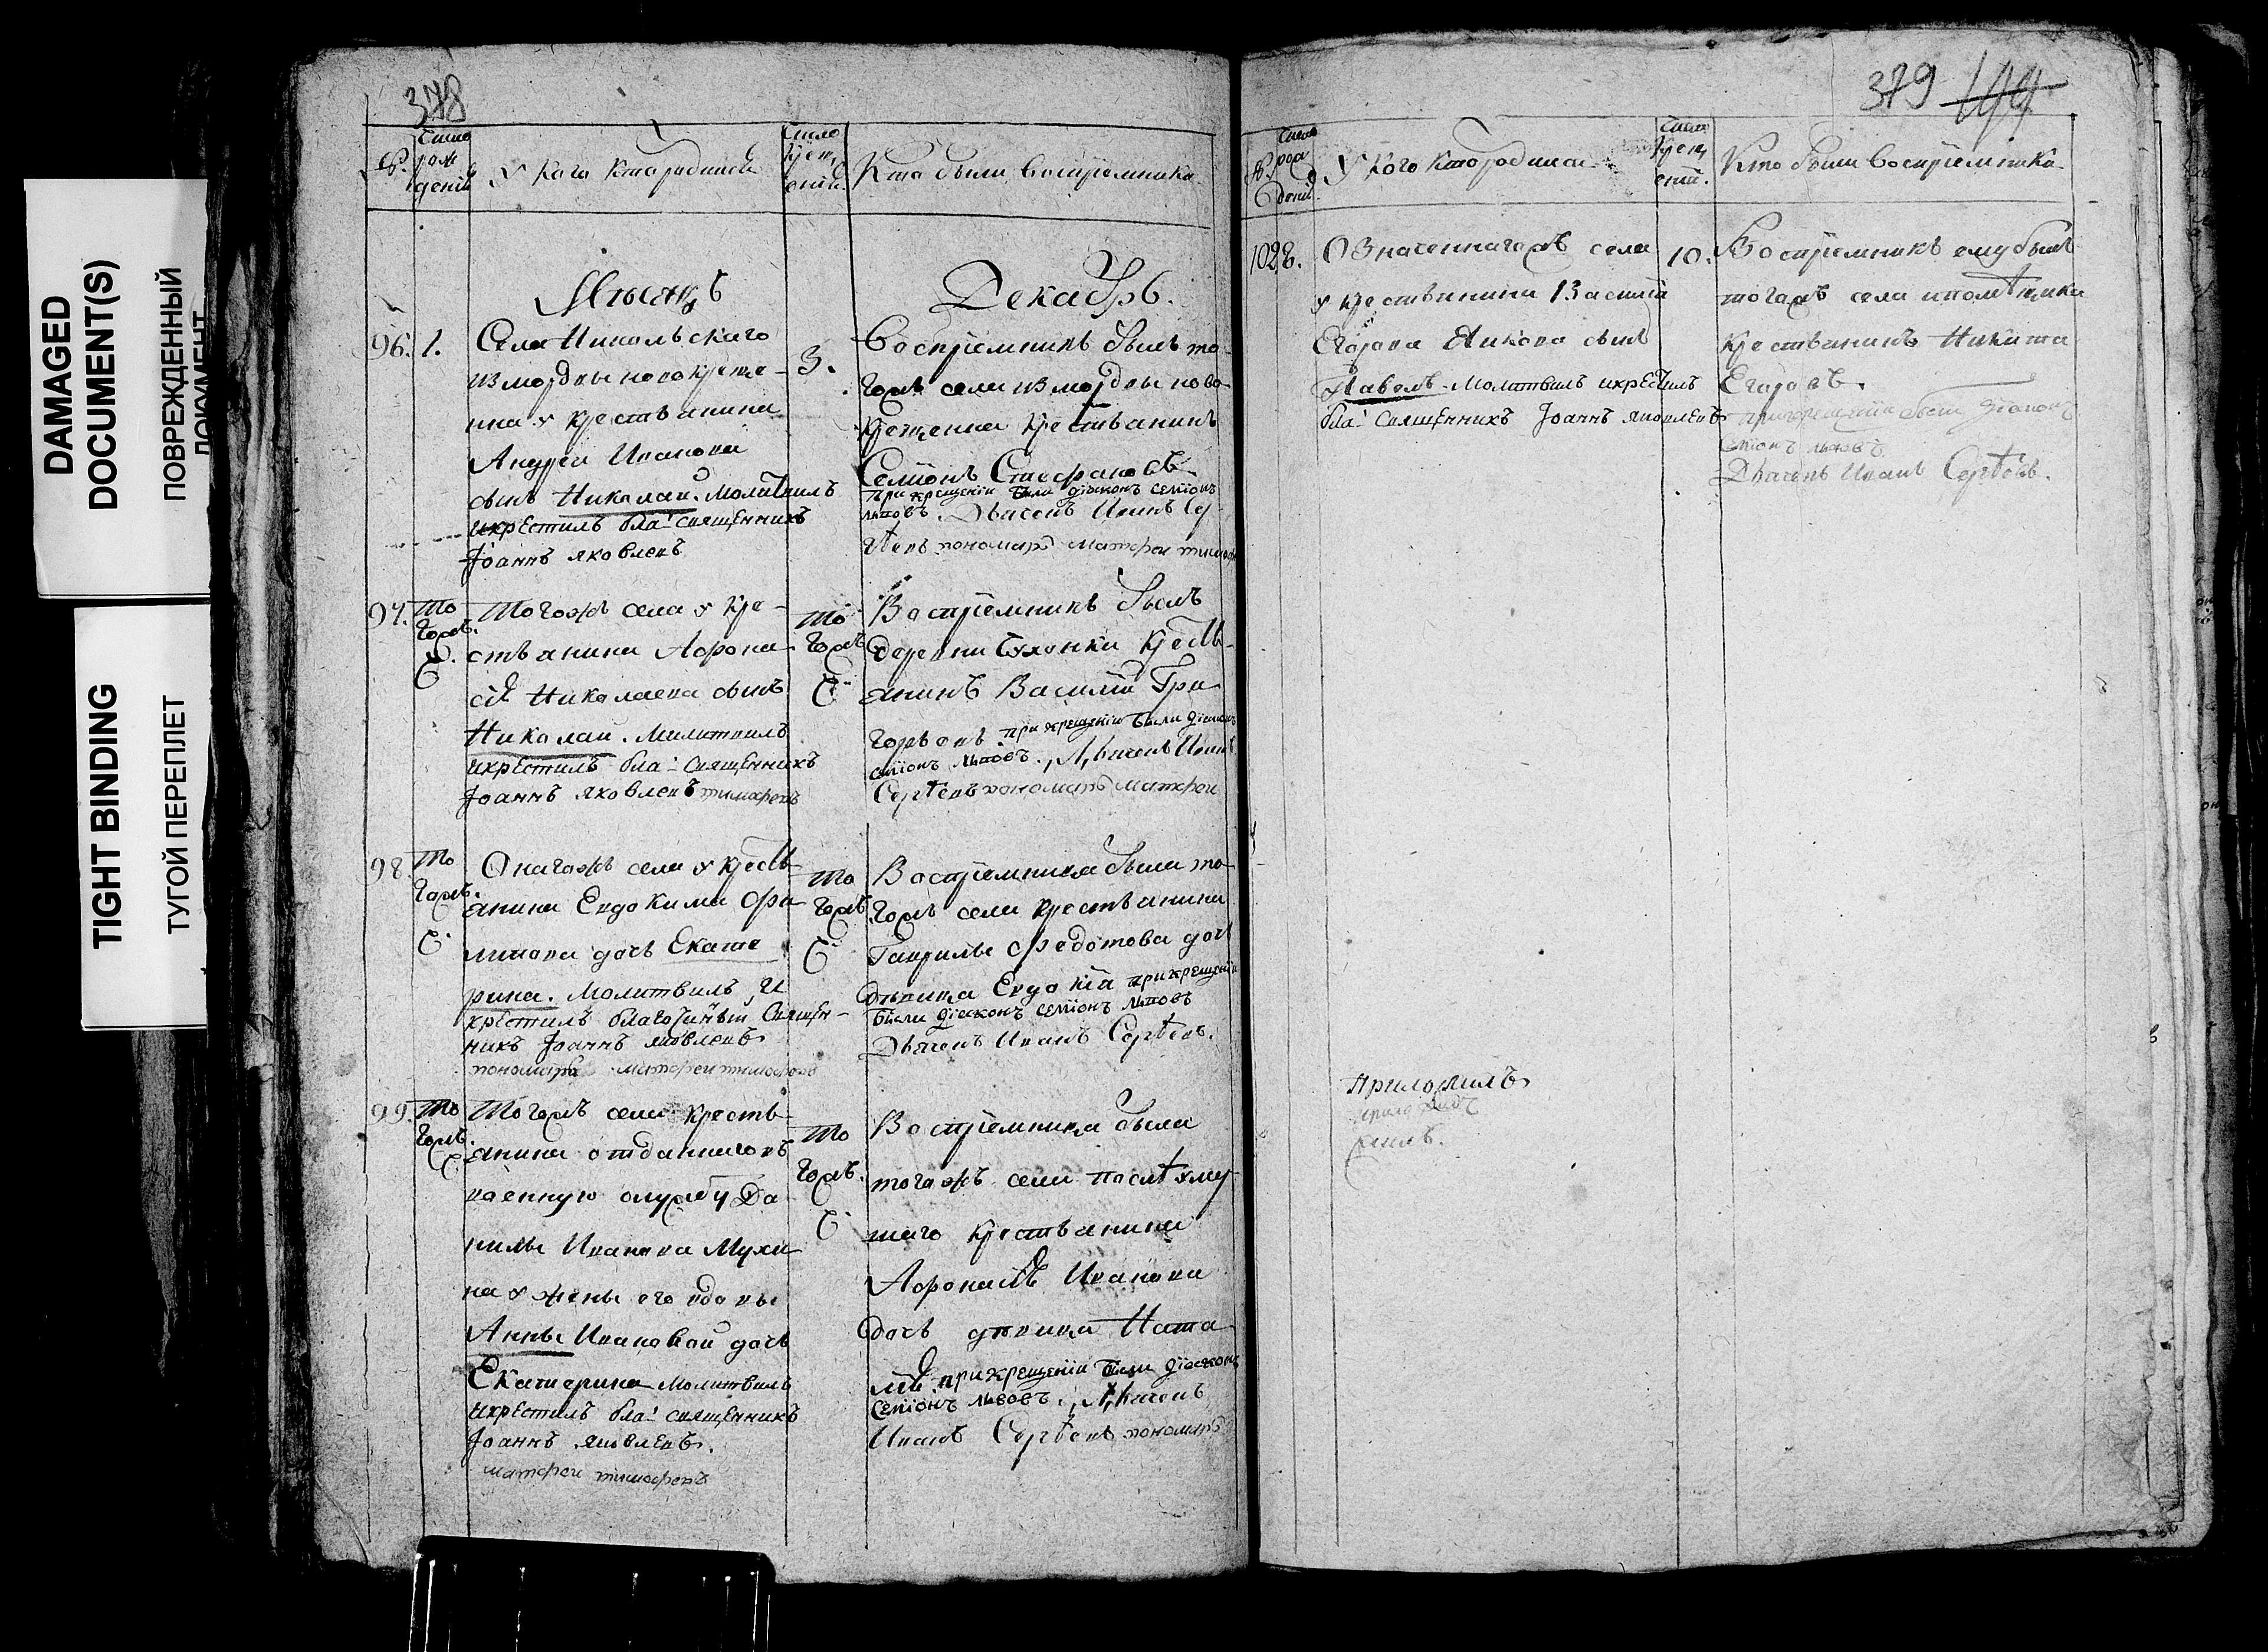 DAMAGED
DOCUMENT(S)
ПОВРЕЖДЕННЫЙ
ДОКУМЕНТ
TIGHT BINDING
ТУГОЙ ПЕРЕПЛЕТ
378
№.
Число
рож
деній
У кого кто родился
Число
крещ
еній.
Кто были воспріемники
Мѣсяцъ
Декабрь.
96.
1.
Села Никольскаго
из мордвы новокреще-
на у крестьянина
Андрея Иванова
сынъ Николай. Молитвилъ
и крестилъ бла: священникъ
Іоаннъ Яковлевъ
3.
Воспріемникъ былъ то-
гожъ села из мордвы ново-
крещенна крестьянинъ
Семіонъ Стефановъ
при крещеніи были діаконъ Семіонъ
Львовъ. Дьячекъ Иванъ Сер-
гѣевъ пономарь Матфей
97.
то
гожъ.
Тогожъ села у кре-
стьянина Афона-
сія Николаева сынъ
Николай. Молитвилъ
и крестилъ бла: священникъ
Іоаннъ Яковлевъ тимофеевъ
то
гожъ
Воспріемникъ былъ
деревни крестья-
янинъ Василій Гри-
горьевъ при крещеніи были діаконъ
Семіонъ Львовъ., Дьячекъ Иванъ
Сергѣевъ пономарь Матфей
98.
то
гожъ.
Онагожъ села у крестья-
янина Евдокима Фи-
липова дочь Екате-
рина. Молитвилъ и
крестилъ благочинный Священ-
никъ Іоаннъ Яковлевъ
пономарь Матфей тимофеевъ
то
гожъ
Воспріемница была то-
гожъ села крестьянина
Гаврилы Федотова дочь
дѣвица Евдокія при крещеніи
были діаконъ Семіонъ Львовъ
Дьячекъ Иванъ Сергѣевъ.
99.
то
гожъ.
Тогожъ села крестья-
янина отданнаго въ
военную службу Да-
нилы Иванова Мухи-
на у жены его вдовы
Анны Ивановой дочь
Екатерина Молитвилъ
и крестилъ бла: священникъ
Іоаннъ Яковлевъ.
Матфей тимофеевъ
то
гожъ.
Воспріемница была
тогожъ села послѣ уме-
шаго крестьянина
Афонасія Иванова
дочь дѣвица Ната-
лія. при крещеніи были діаконъ
Семіонъ Львовъ., Дьячекъ
Иванъ Сергѣевъ пономарь
379
№.
Число
рож
деній
У кого кто родился
Число
крещ
еній.
Кто были воспріемники
102
8.
Означеннагожъ села
у крестьянина Василія
Егорова сынъ
Павелъ. Молитвилъ и крестилъ
бла: священникъ Іоаннъ Яковлевъ
10.
Воспріемникъ ему былъ
тогожъ села и помѣщика
крестьянинъ Никита
Егоровъ.
при крещеніи были діаконъ
Семіонъ Львовъ
Дьячекъ Иванъ Сергѣевъ.
приложилъ
приложилъ